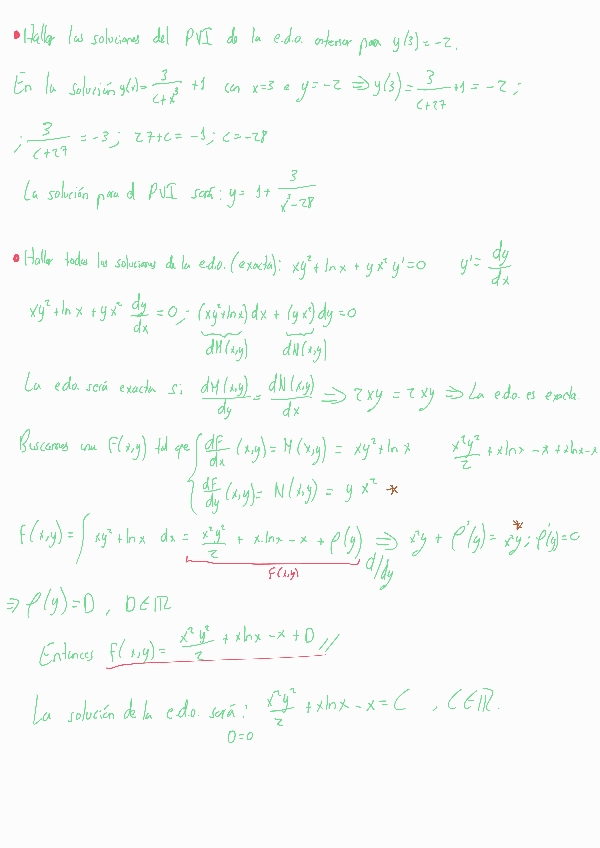 • Hallar las soluciones del PVI de la e.d.o. anterior para y(3) = -2.
En la solución y(x) = 3/(C+x³) + 1 con x=3 e y=-2 ⇒ y(3) = 3/(C+27) + 1 = -2 ;
; 3/(C+27) = -3 ; 27+C = -1 ; C = -28
La solución para el PVI será: y = 1 + 3/(x³-28)
• Hallar todas las soluciones de la e.d.o. (exacta): xy² + ln x + yx² y' = 0 y' = dy/dx
xy² + ln x + yx² dy/dx = 0 ; (xy²+lnx) dx + (yx²) dy = 0
dM(x,y) dN(x,y)
La e.d.o. será exacta si dM(x,y)/dy = dN(x,y)/dx ⇒ 2xy = 2xy ⇒ La e.d.o. es exacta.
Buscamos una F(x,y) tal que { dF/dx (x,y) = M(x,y) = xy² + ln x x²y²/2 + xlnx - x + xlnx - x
dF/dy (x,y) = N(x,y) = y x² *
F(x,y) = ∫ xy² + ln x dx = x²y²/2 + x.lnx - x + ρ(y) ⇒ x²y + ρ'(y) = x²y ; ρ'(y) = 0
*
F(x,y) d/dy
⇒ ρ(y) = D , D∈ℝ
Entonces F(x,y) = x²y²/2 + xlnx - x + D //
La solución de la e.d.o. será: x²y²/2 + xlnx - x = C , C∈ℝ.
D=0